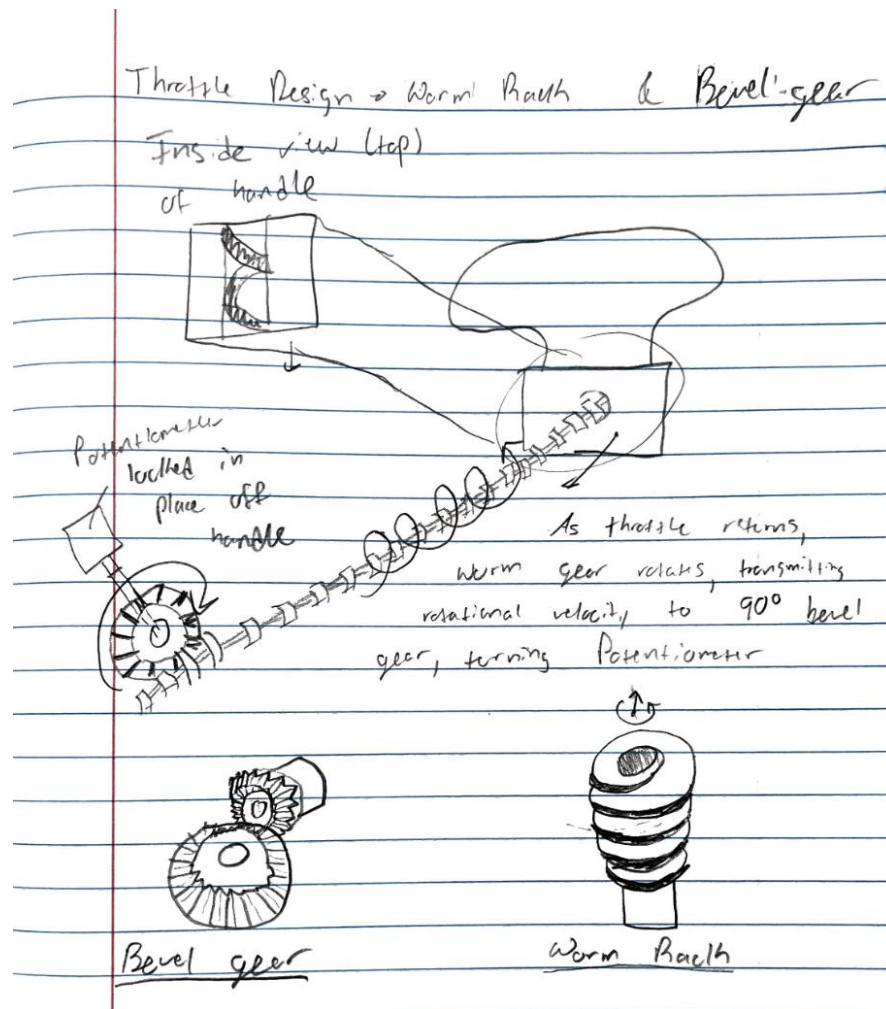 Throttle Design → Worm Rack & Bevel-gear
Inside view (top)
of handle
Potentiometer
locked in
place off
handle
As throttle returns,
worm gear rotates, transmitting
rotational velocity to 90° bevel
gear, turning Potentiometer
Bevel gear
Worm Rack